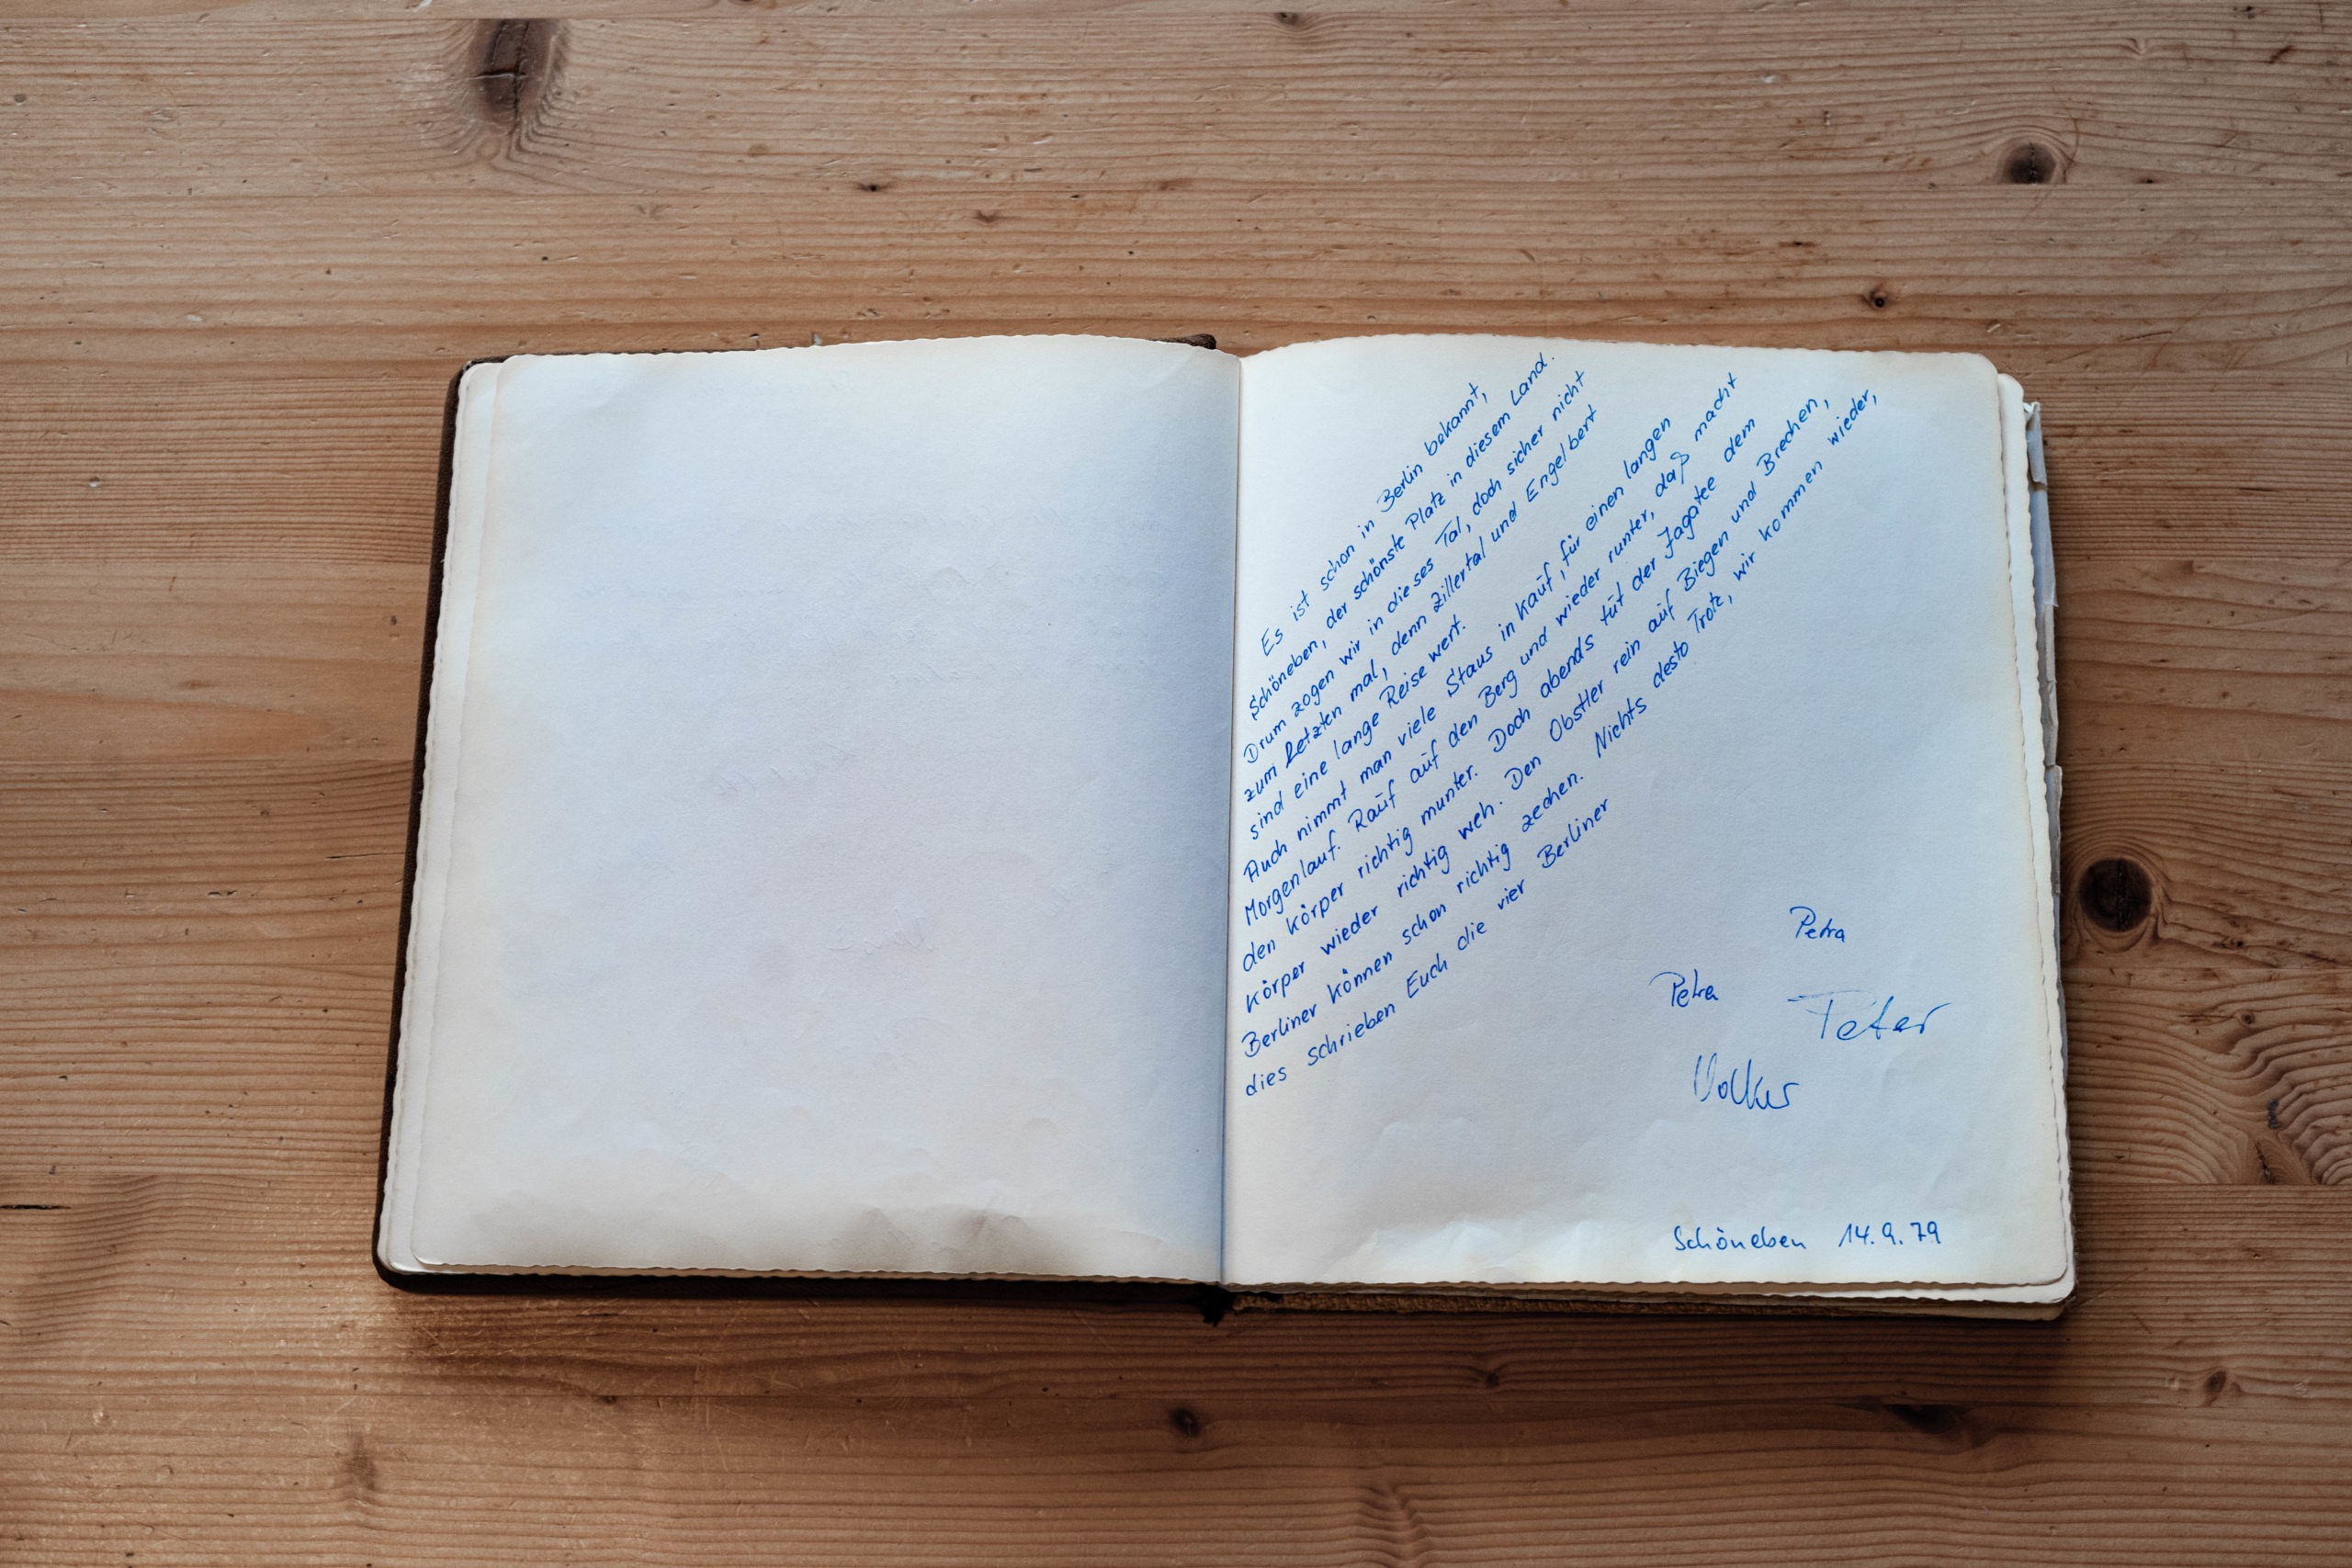 Es ist schon in Berlin bekannt,
Schöneben, der schönste Platz in diesem Land.
Drum zogen wir in dieses Tal, doch sicher nicht
zum Letzten mal, denn Zillertal und Engelbert
sind eine lange Reise wert.
Auch nimmt man viele Staus in Kauf, für einen langen
Morgenlauf. Rauf auf den Berg und wieder runter, daß macht
den Körper richtig munter. Doch abends tut der Jagatee dem
Körper wieder richtig weh. Den Obstler rein auf Biegen und Brechen,
Berliner können schon richtig zechen. Nichts desto Trotz, wir kommen wieder,
dies schrieben Euch die vier Berliner
Petra
Petra
Peter
Volker
Schöneben 14.9.79